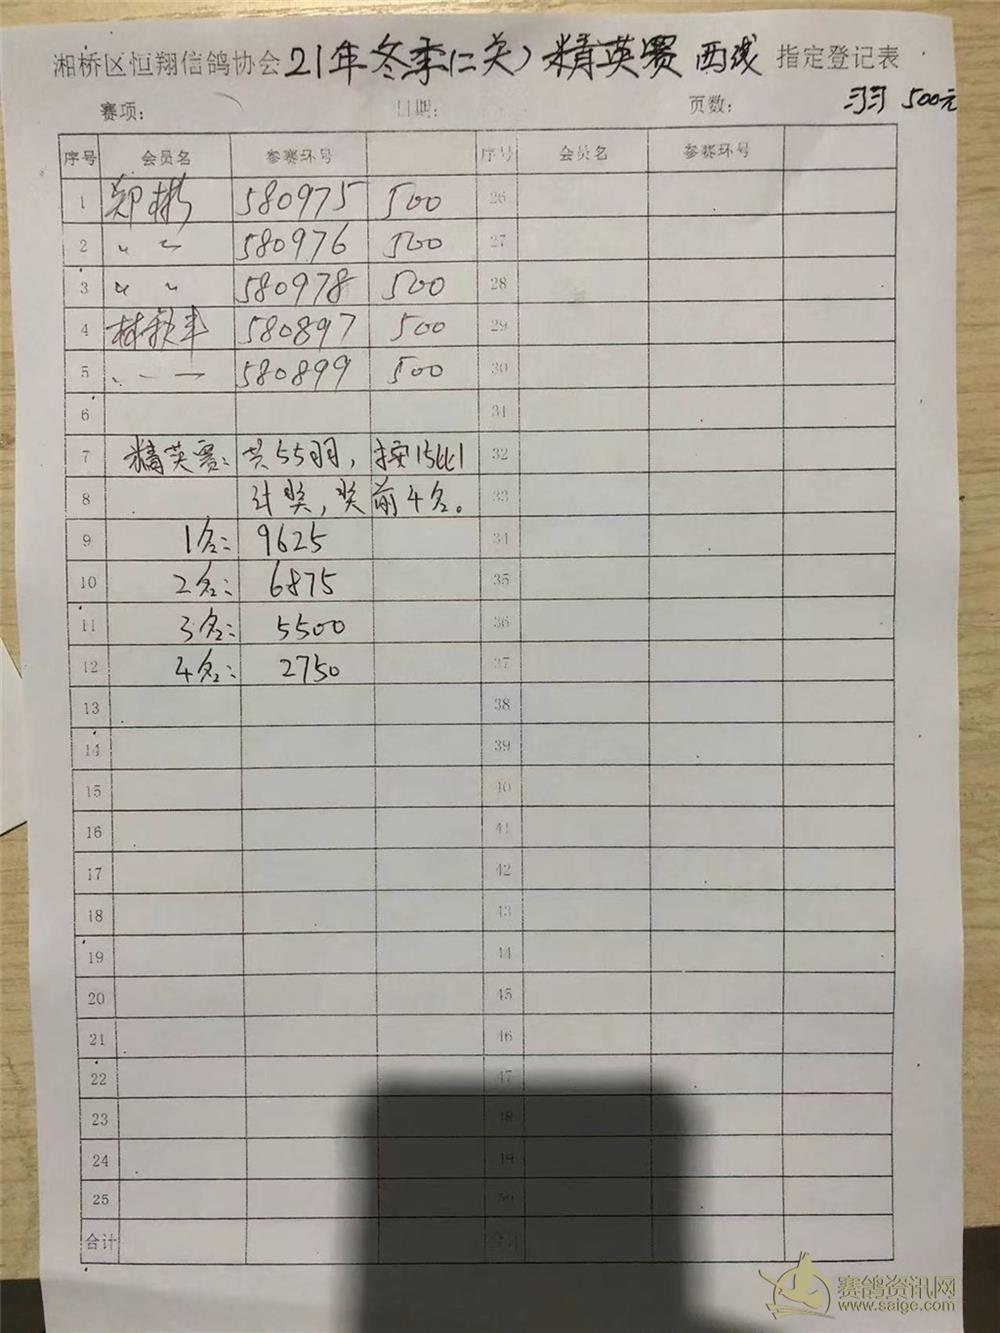 湘桥区恒翔信鸽协会21年冬季(二关)精英赛 西线 指定登记表
赛项: 日期: 页数: 羽 500元
序号 会员名 参赛环号 序号 会员名 参赛环号
1 郑彬 580975 500 26
2 〃 〃 580976 500 27
3 〃 〃 580978 500 28
4 林 580897 500 29
5 580899 500 30
6 31
7 精英赛: 共55羽, 按 32
8 计奖, 奖前4名。 33
9 1名: 9625 34
10 2名: 6875 35
11 3名: 5500 36
12 4名: 2750 37
13 38
14 39
15 40
16 41
17 42
18 43
19 44
20 45
21 46
22 47
23 48
24 49
25 50
合计 合计
赛鸽资讯网
www.saige.com